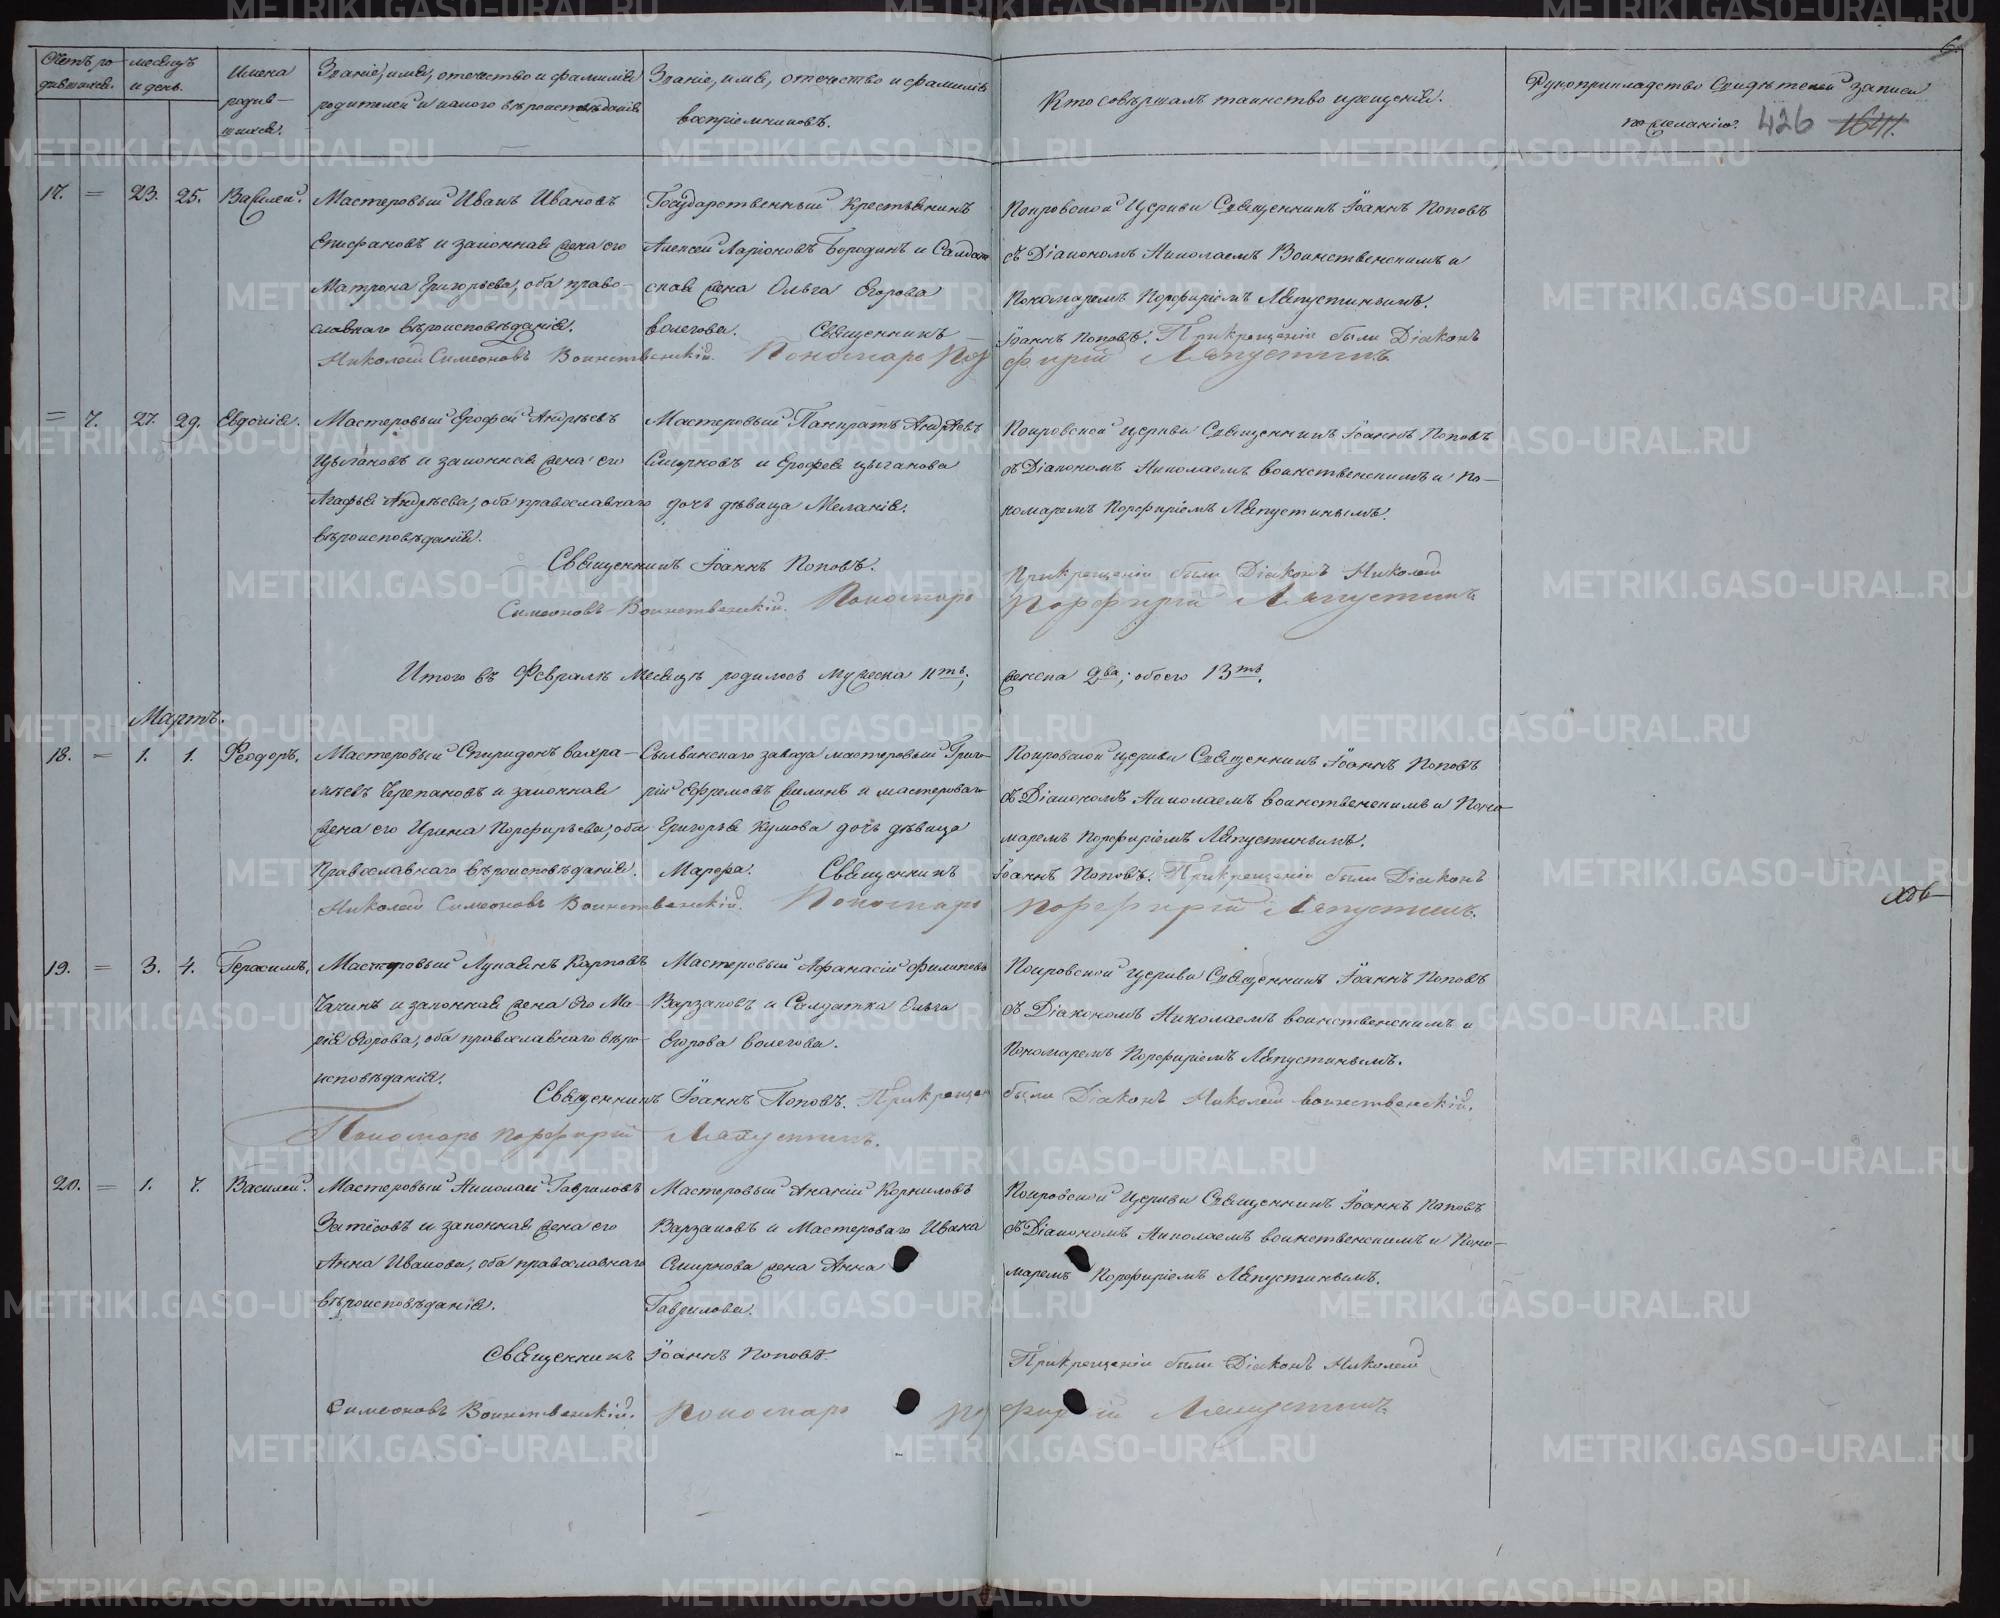 Счетъ ро-
дившихся.
месяцъ
и день.
Имена
родив-
шихся.
Званіе, имя, отечество и фамилія
родителей и какого вѣроисповѣданія
Званіе, имя, отечество и фамилія
воспріемниковъ.
Кто совѣршалъ таинство крещенія.
Рукоприкладство Свидѣтелей записи
по желанію.
426
6.
17. = 23. 25. Василей.
Мастеровый Иванъ Ивановъ
Епифановъ и законная жена его
Матрона Григорьева, оба право-
славнаго вѣроисповѣданія.
Государственный крестьянинъ
Алексей Ларіоновъ Бородинъ и Салдат-
ская жена Ольга Егорова
Волегова. Священникъ
Покровской Церкви Священникъ Іоаннъ Поповъ
съ Діакономъ Николаемъ Воинственскимъ и
Пономаремъ Порфиріемъ Ляпустинымъ.
Іоаннъ Поповъ. При крещеніи были Діаконъ
Николай Симеоновъ Воинственскій. Пономарь Порфирій Ляпустинъ.
= 7. 27. 29. Евдокія.
Мастеровый Ерофей Андреевъ
Цыгановъ и законная жена его
Агафья Андреева, оба православнаго
вѣроисповѣданія.
Мастеровый Панкратъ Андреевъ
Смирновъ и Ерофея Цыганова
дочь дѣвица Меланія.
Покровской церкви Священникъ Іоаннъ Поповъ
съ Діакономъ Николаемъ Воинственскимъ и По-
номаремъ Порфиріемъ Ляпустинымъ.
Священникъ Іоаннъ Поповъ. При крещеніи были Діаконъ Николай
Симеоновъ Воинственскій. Пономарь Порфирій Ляпустинъ.
Итого въ Февралѣ Месяцѣ родилось мужеска 11ть; женска два; обоего 13ть.
Мартъ.
18. = 1. 1. Феодоръ.
Мастеровый Спиридонъ Вахра-
мѣевъ Черепановъ и законная
жена его Ирина Порфирьева, оба
Православнаго вѣроисповѣданія.
Сылвинскаго завода мастеровый Григо-
рій Ефремовъ Силинъ и мастероваго
Григорья Кумова дочь дѣвица
Марфа. Священникъ
Покровской церкви Священникъ Іоаннъ Поповъ
съ Діакономъ Николаемъ Воинственскимъ и Поно-
маремъ Порфиріемъ Ляпустинымъ.
Іоаннъ Поповъ. При крещеніи были Діаконъ
Николай Симеоновъ Воинственскій. Пономарь Порфирій Ляпустинъ.
19. = 3. 4. Герасимъ.
Мастеровый Лукаянъ Карповъ
Чачинъ и законная жена его Ма-
рія Егорова, оба православнаго вѣро-
исповѣданія.
Мастеровый Афанасій Филиповъ
Варзаковъ и Салдатка Ольга
Егорова Волегова.
Покровской церкви Священникъ Іоаннъ Поповъ
съ Діакономъ Николаемъ Воинственскимъ и
Пономаремъ Порфиріемъ Ляпустинымъ.
Священникъ Іоаннъ Поповъ. При крещен были Діаконъ Николай Воинственскій.
Пономарь Порфирій Ляпустинъ.
20. = 1. 7. Василей.
Мастеровый Николай Гавриловъ
Затёсовъ и законная жена его
Анна Иванова, оба православнаго
вѣроисповѣданія.
Мастеровый Ананій Корниловъ
Варзаковъ и Мастероваго Ивана
Смирнова жена Анна
Гаврилова.
Покровской Церкви Священникъ Іоаннъ Поповъ
съ Діакономъ Николаемъ Воинственскимъ и Поно-
маремъ Порфиріемъ Ляпустинымъ.
Священникъ Іоаннъ Поповъ. При крещеніи были Діаконъ Николай
Симеоновъ Воинственскій. Пономарь Порфирій Ляпустинъ.
METRIKI.GASO-URAL.RU